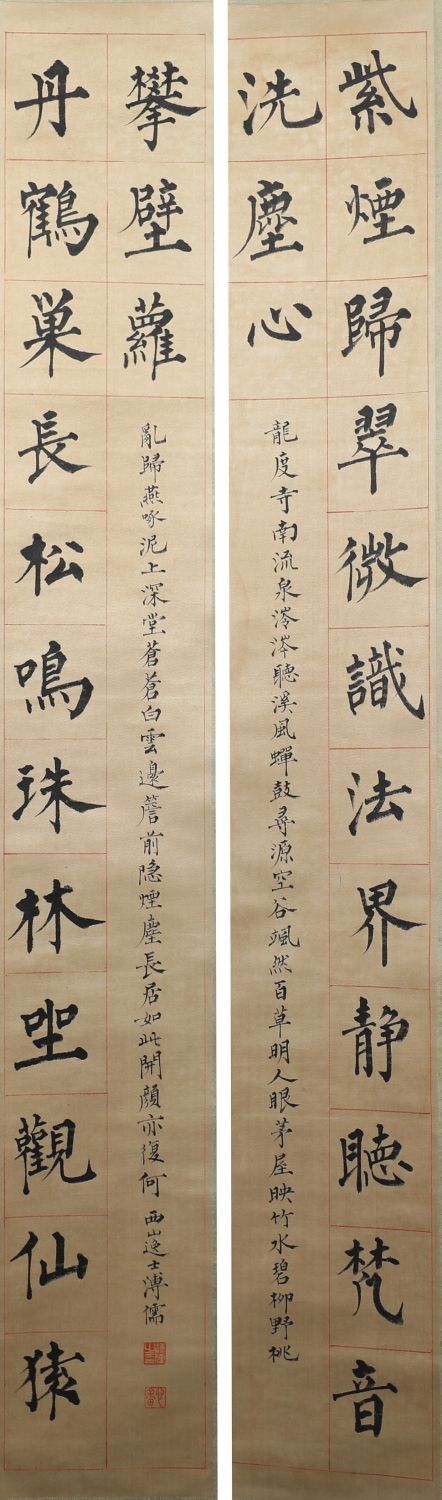 紫煙歸翠微識法界靜聽梵音
洗塵心
龍度寺南流泉涔涔聽溪風蟬鼓尋源空谷颯然百草明人眼茅屋映竹水碧柳野桃
丹鶴巢長松鳴珠林坐觀仙猿
攀壁蘿
亂歸燕啄泥上深堂蒼蒼白雲邊簷前隐煙塵長居如此開顏亦復何 西山逸士溥儒